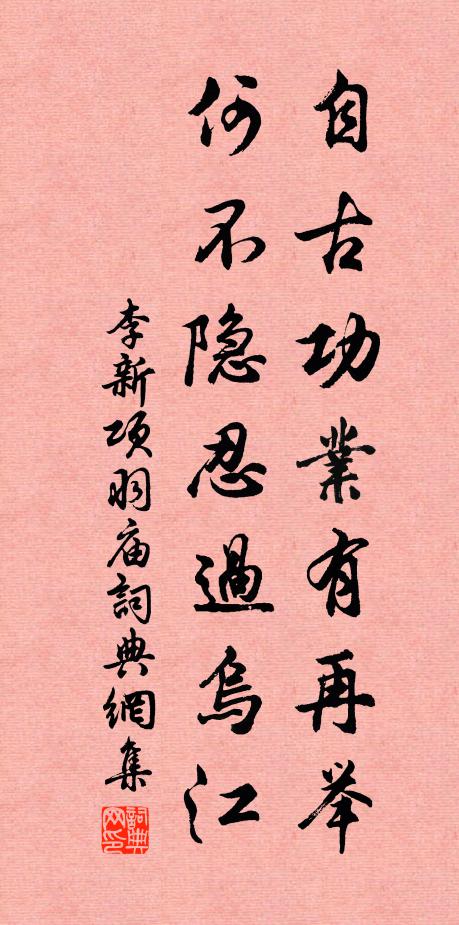 自古功業有再举
何不隐忍過烏江
李新项羽庙詞典網集
詞典网印